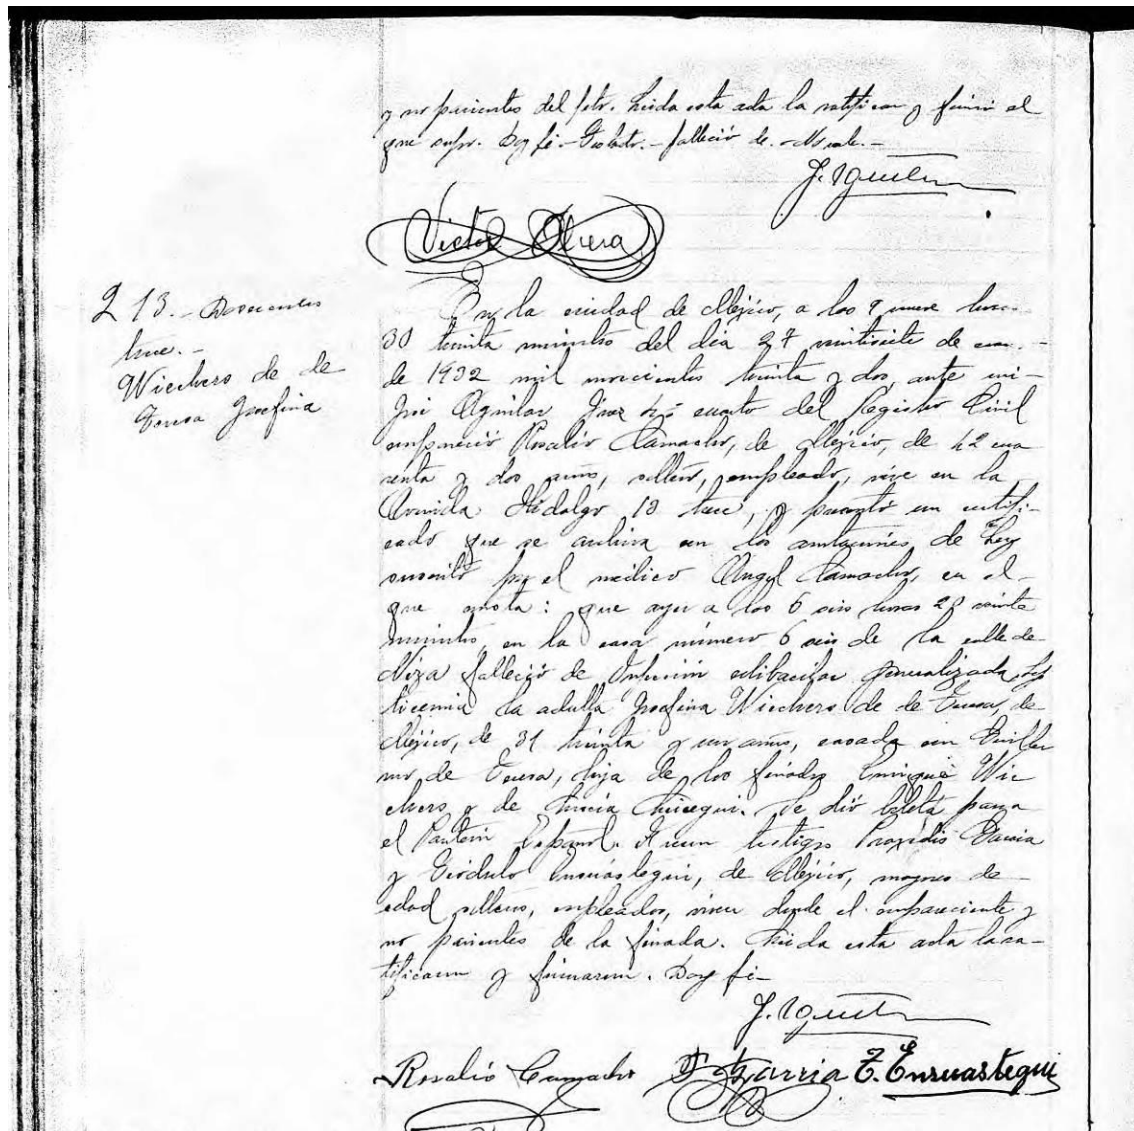 y no parientes del feto. Leida esta acta la ratificó y firmó el
que supo. Doy fe.- Testado.- falleció de.- No vale.-
Victor Olvera
213.- Doscientos
trece.-
Wiechers de de
Teresa Josefina
En la ciudad de Méjico, a las 9 nueve horas
30 treinta minutos del dia 27 veintisiete de enero
de 1932 mil novecientos treinta y dos, ante mi-
José Aguilar Juez 4o cuarto del Registro Civil
compareció Rosalio Camacho, de Méjico, de 42 cua
renta y dos años, soltero, empleado, vive en la
Avenida Hidalgo 13 trece, y presentó un certifi-
cado que se archiva con las anotaciones de Ley
suscrito por el médico Angel Camacho, en el-
que consta: que ayer a las 6 seis horas 20 veinte
minutos, en la casa número 6 seis de la calle de
Niza falleció de Infección colibacilar generalizada, Sep
ticemia la adulta Josefina Wiechers de de Teresa, de
Méjico, de 31 treinta y un años, casada con Guiller
mo de Teresa, hija de los finados Enrique Wie
chers y de Lucia. Se dió boleta para
el Panteón Español. Fueron testigos Praxedis Garcia
y Teódulo Enruástegui, de Méjico, mayores de
edad solteros, empleados, viven donde el compareciente y
no parientes de la finada. Leida esta acta la ra-
tificaron y firmaron. Doy fe-
Rosalio Camacho P. Garcia T. Enruastegui